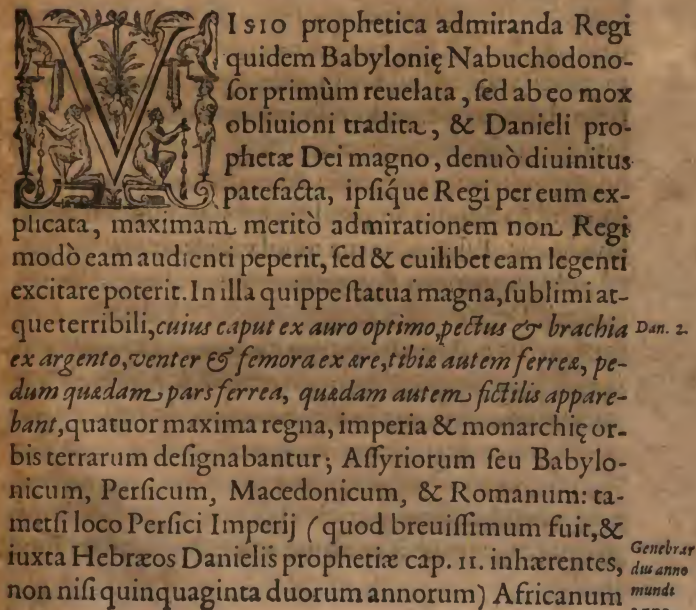 VISIO prophetica admiranda Regi
quidem Babylonię Nabuchodono-
ſor primùm reuelata, ſed ab eo mox
obliuioni tradita, & Danieli pro-
phetæ Dei magno, denuò diuinitus
patefacta, ipſíque Regi per eum ex-
plicata, maximam meritò admirationem non Regi
modò eam audienti peperit, ſed & cuilibet eam legenti
excitare poterit. In illa quippe ſtatua magna, ſublimi at-
que terribili, cuius caput ex auro optimo, pectus & brachia
Dan. 2.
ex argento, venter & femora ex ære, tibiæ autem ferreæ, pe-
dum quædam pars ferrea, quædam autem fictilis appare-
bant, quatuor maxima regna, imperia & monarchię or-
bis terrarum deſignabantur; Aſſyriorum ſeu Babylo-
nicum, Perſicum, Macedonicum, & Romanum: ta-
metſi loco Perſici Imperij (quod breuiſſimum fuit, &
iuxta Hebræos Danielis prophetiæ cap. 11. inhærentes,
non niſi quinquaginta duorum annorum) Africanum
Genebrar
dus anno
mundi